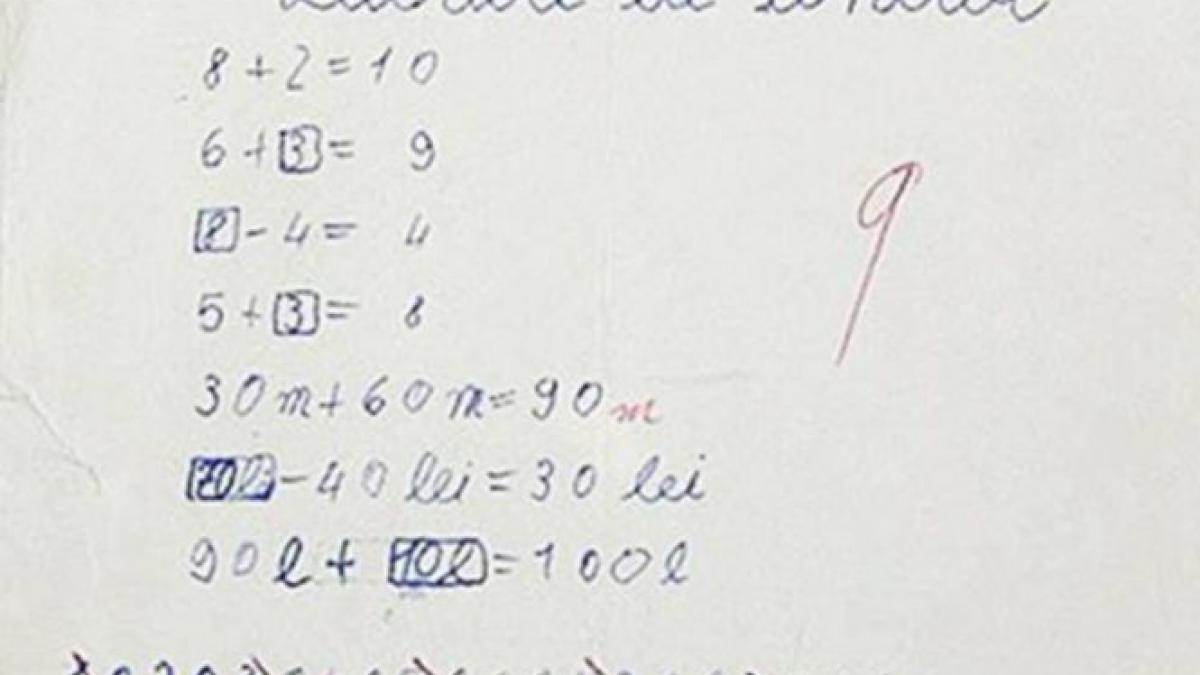 8 + 2 = 10
6 + 3 = 9
8 - 4 = 4
5 + 3 = 8
30 m + 60 m = 90 m
9
- 40 lei = 30 lei
90 l + 10 l = 100 l